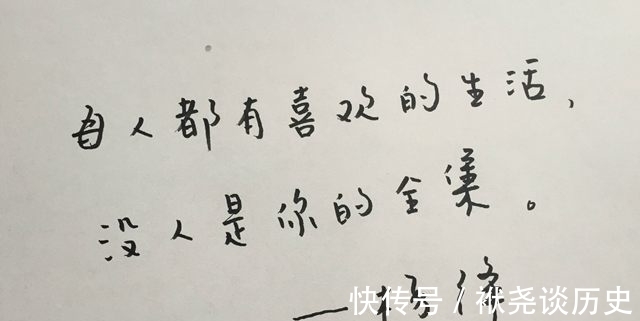 每人都有喜欢的生活,
没人是你的全集。
快传号 / 袱尧谈历史